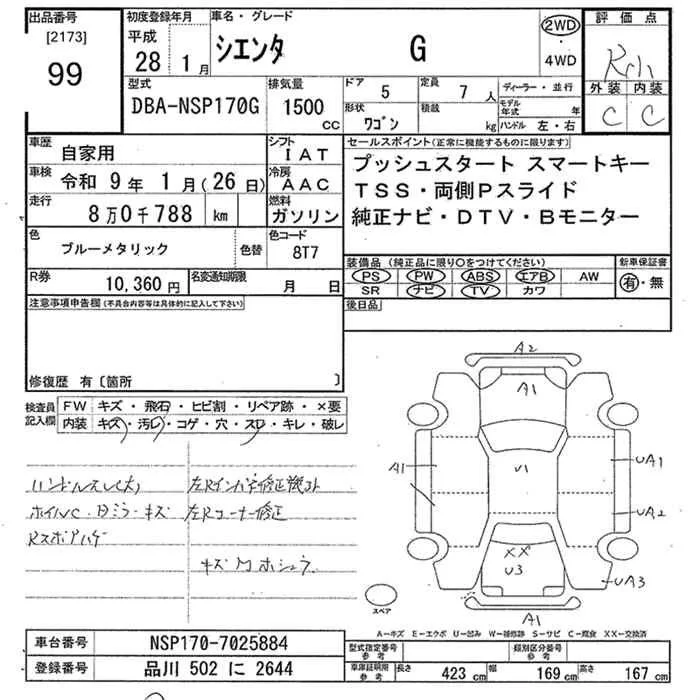 出品番号
[2173]
99
初度登録年月
平成
28 1月
車名・グレード
シエンタ G
2WD
4WD
評価点
外装 内装
C C
型式
DBA-NSP170G
排気量
1500 cc
ドア 5
定員 7 人
形状 ワゴン
積載 kg
ディーラー・並行
モデル年式 年
ハンドル 左・右
車歴 自家用
シフト IAT
車検 令和 9年 1月(26日)
冷房 AAC
走行 8万0千788 km
燃料 ガソリン
色 ブルーメタリック
色替
色コード 8T7
R券 10,360円
名変通知期限 月 日
セールスポイント(正常に機能するものに限ります)
プッシュスタート スマートキー
TSS・両側Pスライド
純正ナビ・DTV・Bモニター
装備品(純正品に限り○をつけてください)
PS PW ABS エアB AW
SR ナビ TV カワ
新車保証書
有・無
後日品
注意事項申告欄(不具合内容等は具体的に記入して下さい)
修復歴 有〔箇所 〕
検査員記入欄
FW キズ・飛石・ヒビ割・リペア跡・×要
内装 キズ・汚レ・コゲ・穴・スレ・キレ・破レ
ハンドルスレ大
ホイルC・Bミラーキズ
左Rコーナー修正
A2
A1
A1
U1
UA1
UA2
XX
U3
UA3
A1
スペア
A-キズ E-エクボ U-凹み W-補修跡 S-サビ C-腐食 XX-交換済
車台番号 NSP170-7025884
登録番号 品川 502 に 2644
型式指定番号 参考
類別区分番号 参考
車庫証明用 参考
長さ 423 cm 幅 169 cm 高さ 167 cm